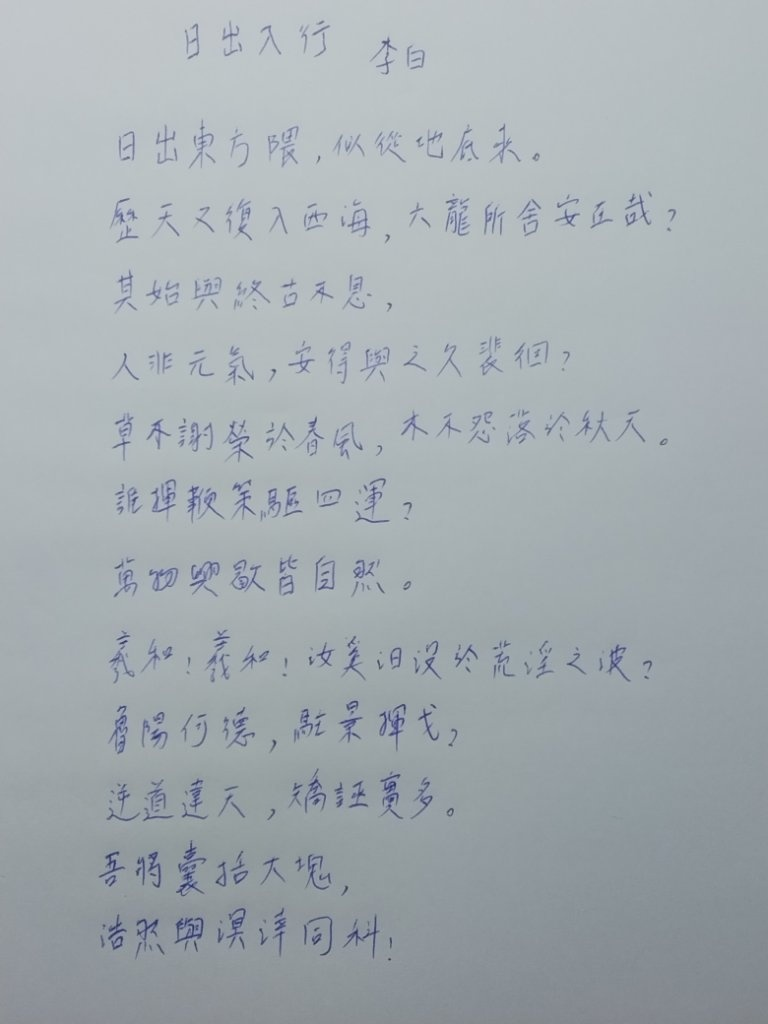 日出入行 李白
日出東方隈，似從地底來。
歷天又復入西海，六龍所舍安在哉？
其始與終古不息，
人非元氣，安得與之久裴徊？
草不謝榮於春風，木不怨落於秋天。
誰揮鞭策驅四運？
萬物興歇皆自然。
羲和！羲和！汝奚汨没於荒淫之波？
魯陽何德，駐景揮戈？
逆道違天，矯誣實多。
吾將囊括大塊，
浩然與溟涬同科！